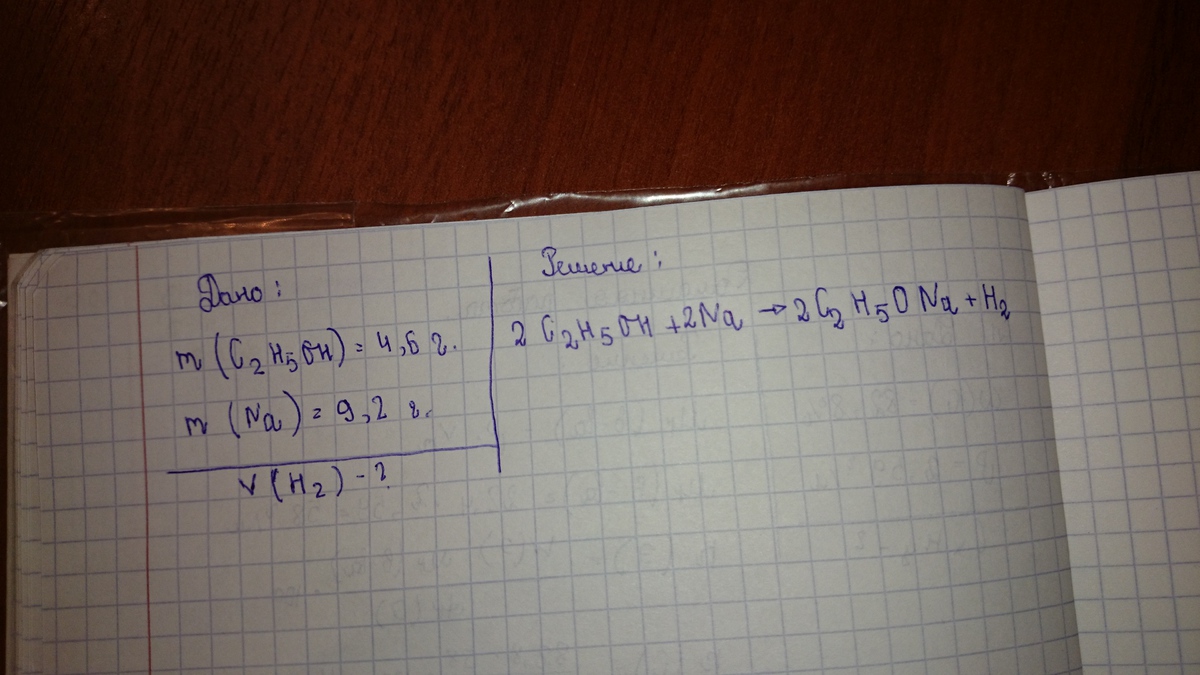 Дано:
m (C₂H₅OH) = 4,6 г.
m (Na) = 9,2 г.
V (H₂) - ?
Решение:
2 C₂H₅OH + 2Na → 2C₂H₅ONa + H₂